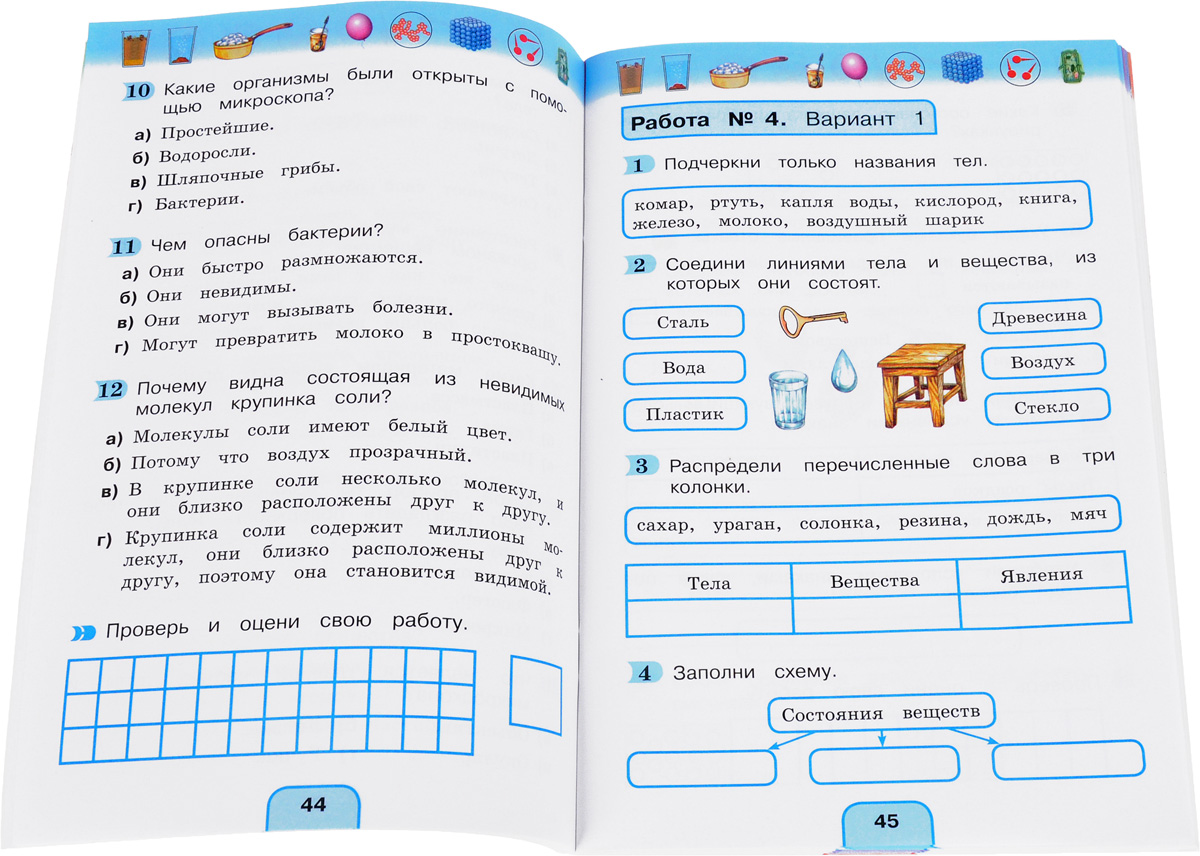 10 Какие организмы были открыты с помо-
щью микроскопа?
а) Простейшие.
б) Водоросли.
в) Шляпочные грибы.
г) Бактерии.
11 Чем опасны бактерии?
а) Они быстро размножаются.
б) Они невидимы.
в) Они могут вызывать болезни.
г) Могут превратить молоко в простоквашу.
12 Почему видна состоящая из невидимых
молекул крупинка соли?
а) Молекулы соли имеют белый цвет.
б) Потому что воздух прозрачный.
в) В крупинке соли несколько молекул, и
они близко расположены друг к другу.
г) Крупинка соли содержит миллионы мо-
лекул, они близко расположены друг к
другу, поэтому она становится видимой.
Проверь и оцени свою работу.
44
Работа № 4. Вариант 1
1 Подчеркни только названия тел.
комар, ртуть, капля воды, кислород, книга,
железо, молоко, воздушный шарик
2 Соедини линиями тела и вещества, из
которых они состоят.
Сталь
Вода
Пластик
Древесина
Воздух
Стекло
3 Распредели перечисленные слова в три
колонки.
сахар, ураган, солонка, резина, дождь, мяч
Тела Вещества Явления
4 Заполни схему.
Состояния веществ
45